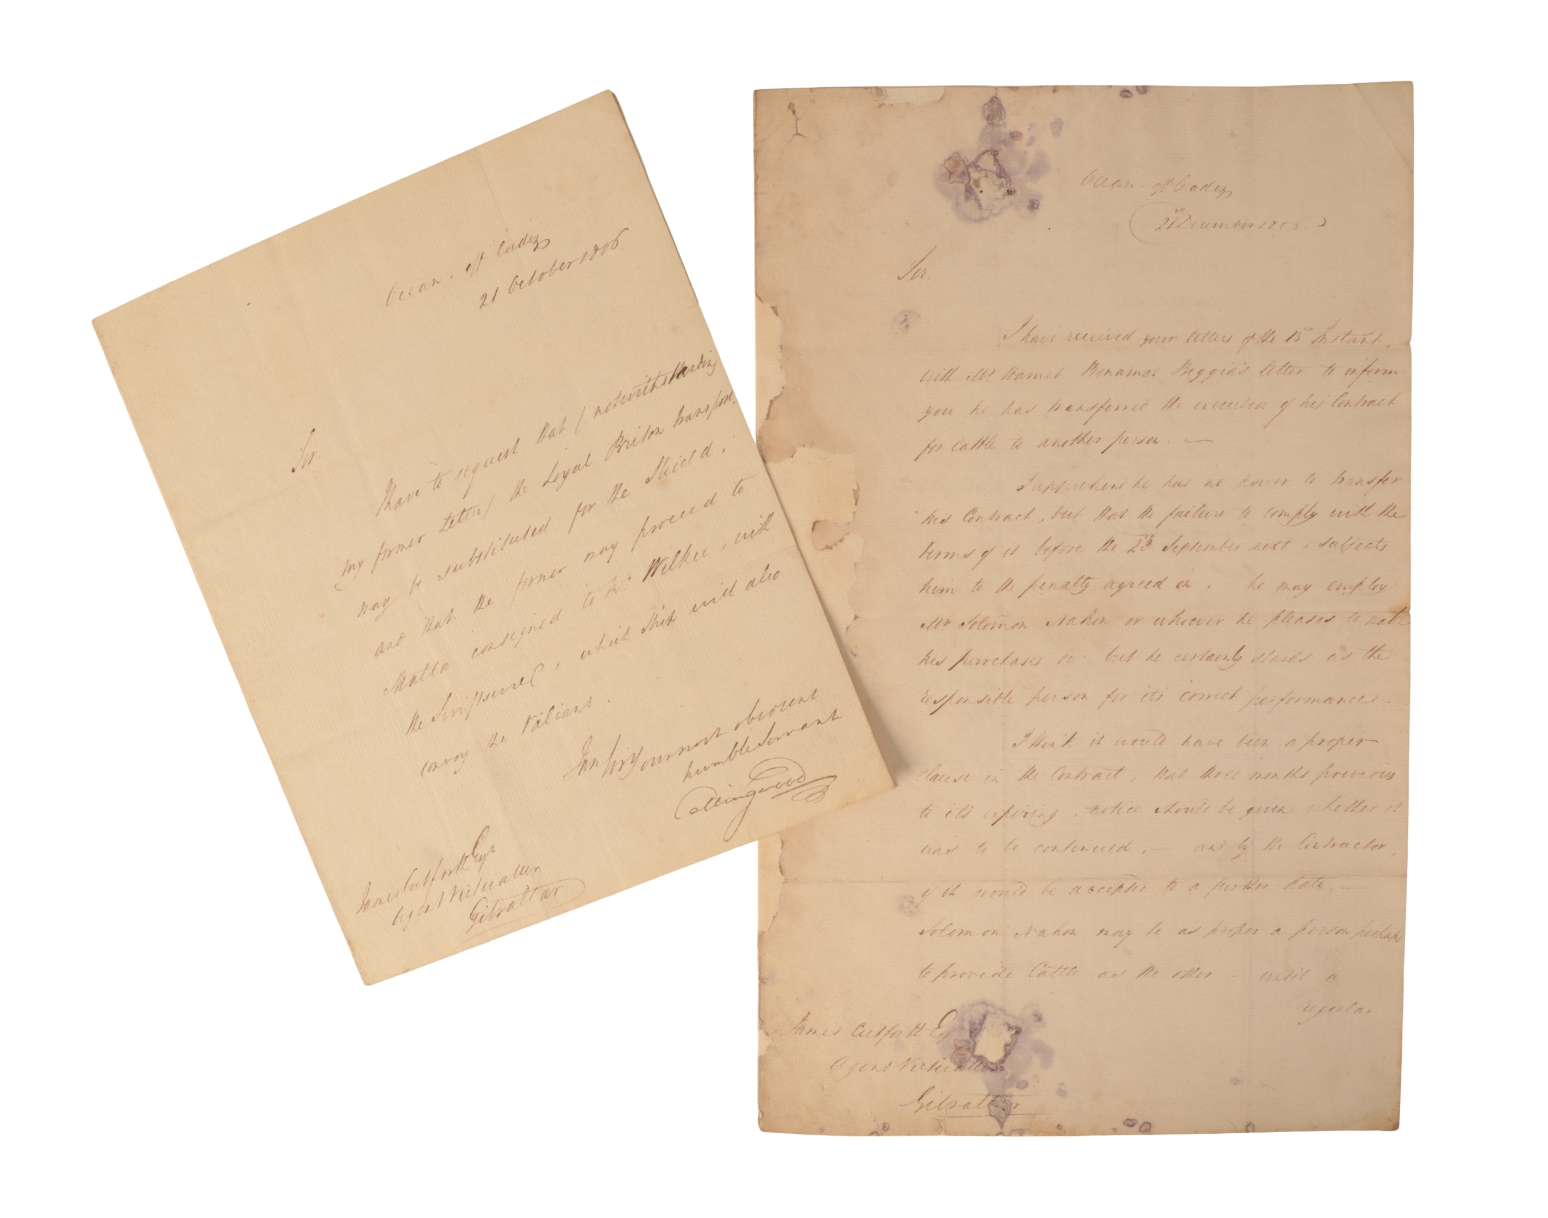 Ocean. off Cadiz
21 October 1806
Sir.
I have to request that (notwithstanding
my former Letter) the Loyal Briton Transport,
may be substituted for the Shield,
and that the former may proceed to
Malta consigned to Mr. Wilkie, with
the, which Ship will also
convoy the Valiant.
I am Sir Your most obedient
humble Servant
Collingwood
James Cutforth Esqr
Agent Victualler
Gibraltar
Ocean. off Cadiz,
21st December
Sir
I have received your letters of the 15th Instant,
with Mr Hamet Benamar Beggia's letter to inform
you he has transferred the execution of his Contract
for Cattle to another person. —
I apprehend he has no power to transfer
his Contract, but that the failure to comply with the
terms of it before the September next, subjects
him to the penalty agreed in. he may employ
Mr Solomon Nahon or whoever he pleases to make
his purchases but he certainly stands as the
responsible person for its correct performance.
I think it would have been a proper
clause in the Contract, that three months previous
to its expiring, notice should be given whether it
was to be continued, — and by the Contractor,
if it would be accepted to a further date. —
Solomon Nahon may be as proper a person perhaps
to provide Cattle as the other — until a
regular
James Cutforth Esqr
Agent Victualler
Gibraltar